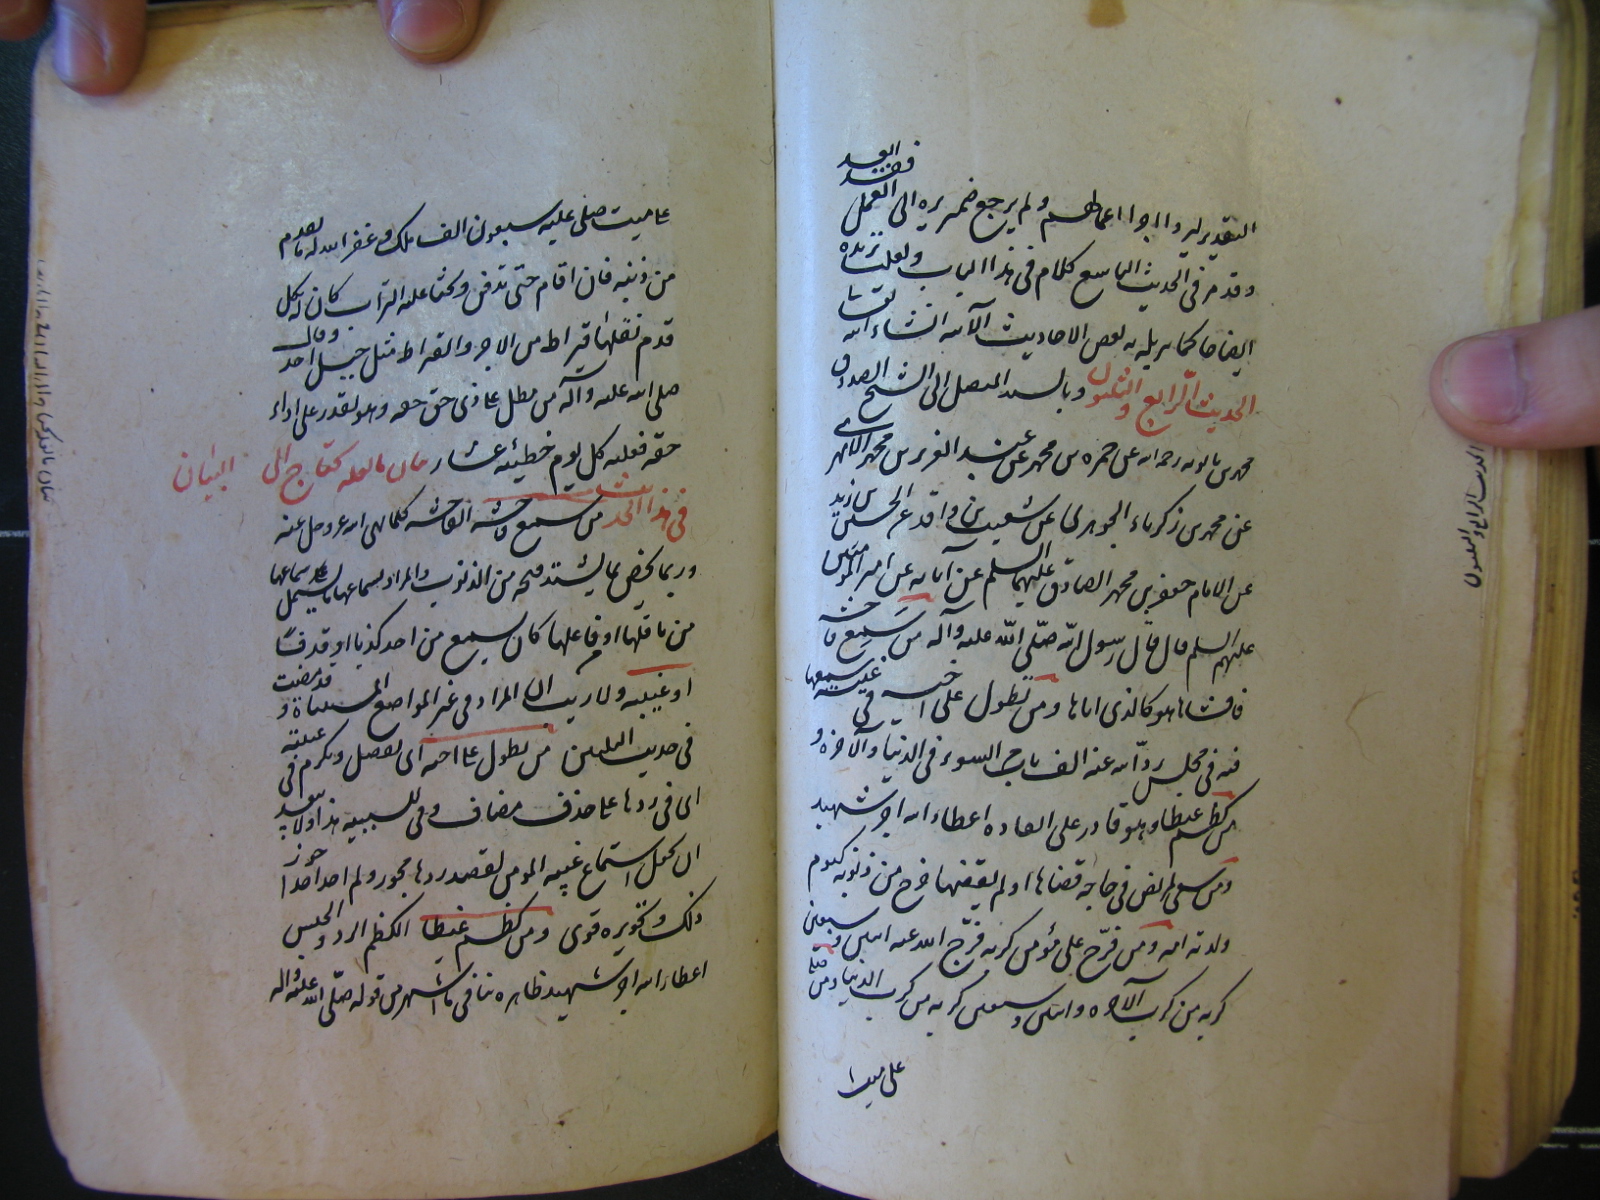 التقدير ليروا جزاء اعمالهم ولم يرجع ضميره الى العمل فقد ابعد
وقد مر في الحديث التاسع كلام في هذا الباب ولعلك تزيده
ايضاحا كما يريك به بعض الاحاديث الآتية انشاء الله تعالى
الحديث الرابع والثلثون وبالسند المتصل الى الشيخ الصدوق
محمد بن بابويه رحمه الله عن حمزة بن محمد عن عبد العزيز بن محمد الابهري
عن محمد بن زكرياء الجوهري عن شعيب بن واقد عن الحسين بن زيد
عن الامام جعفر بن محمد الصادق عليهما السلم عن آبائه عن امير المؤمنين
عليهم السلم قال قال رسول الله صلى الله عليه وآله من سمع فاحشة
فافشاها فهو كالذي اتاها ومن تطول على اخيه في غيبة سمعها
فيه في مجلس رد الله عنه الف باب من السوء في الدنيا والآخرة و
من كظم غيظا وهو قادر على انفاذه اعطاه الله اجر شهيد
ومن سعى لمريض في حاجة قضاها او لم يقضها خرج من ذنوبه كيوم
ولدته امه ومن فرج على مؤمن كربة فرج الله عنه اثنين وسبعين
كربة من كرب الآخرة واثنين وسبعين كربة من كرب الدنيا ومن صلى
على ميت
الحديث الرابع والثلثون
على ميت صلى عليه سبعون الف ملك وغفر الله له ما تقدم
من ذنبه فان اقام حتى يدفن وحثا عليه التراب كان له بكل
قدم نقلها قيراط من الاجر والقيراط مثل جبل احد وقال
صلى الله عليه وآله من مطل على ذي حق حقه وهو يقدر على اداء
حقه فعليه كل يوم خطيئة عشار بيان ما لعله يحتاج الى البيان
في هذا الحديث من سمع فاحشة الفاحشة كلما نهى الله عز وجل عنه
وربما يخص بما يشتد قبحه من الذنوب والمراد بسماعها ما يشمل سماعها
من ناقلها او فاعلها كان يسمع من احد كذبا او قذفا
او غيبة ولا ريب ان المراد في غير المواضع المستثناة وقد مضت
في حديث الثلثين من تطول على اخيه اي تفضل وتكرم في غيبته
اي في ردها على حذف مضاف وفي للسببية هذا ولا يبعد
ان يجعل استماع غيبة المؤمن لقصد ردها مجوزا ولم اجد احدا جوز
ذلك وتجويزه قوى ومن كظم غيظا الكظم الرد والحبس
اعطاه الله اجر شهيد ظاهره ينافي ما اشتهر من قوله صلى الله عليه وآله